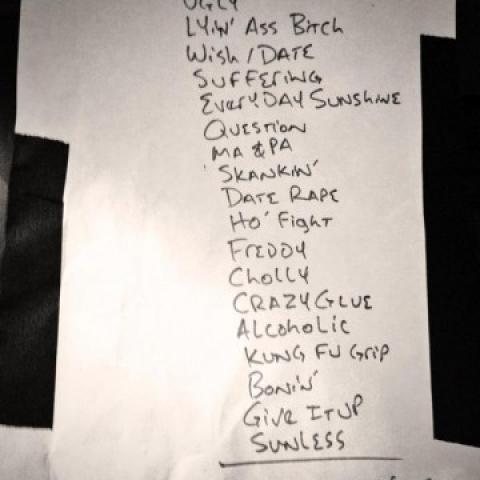 UGLY
LYIN' ASS BITCH
WISH / DATE
SUFFERING
EVERYDAY SUNSHINE
QUESTION
MA & PA
SKANKIN'
DATE RAPE
HO' FIGHT
FREDDY
CHOLLY
CRAZY GLUE
ALCOHOLIC
KUNG FU GRIP
BONIN'
GIVE IT UP
SUNLESS